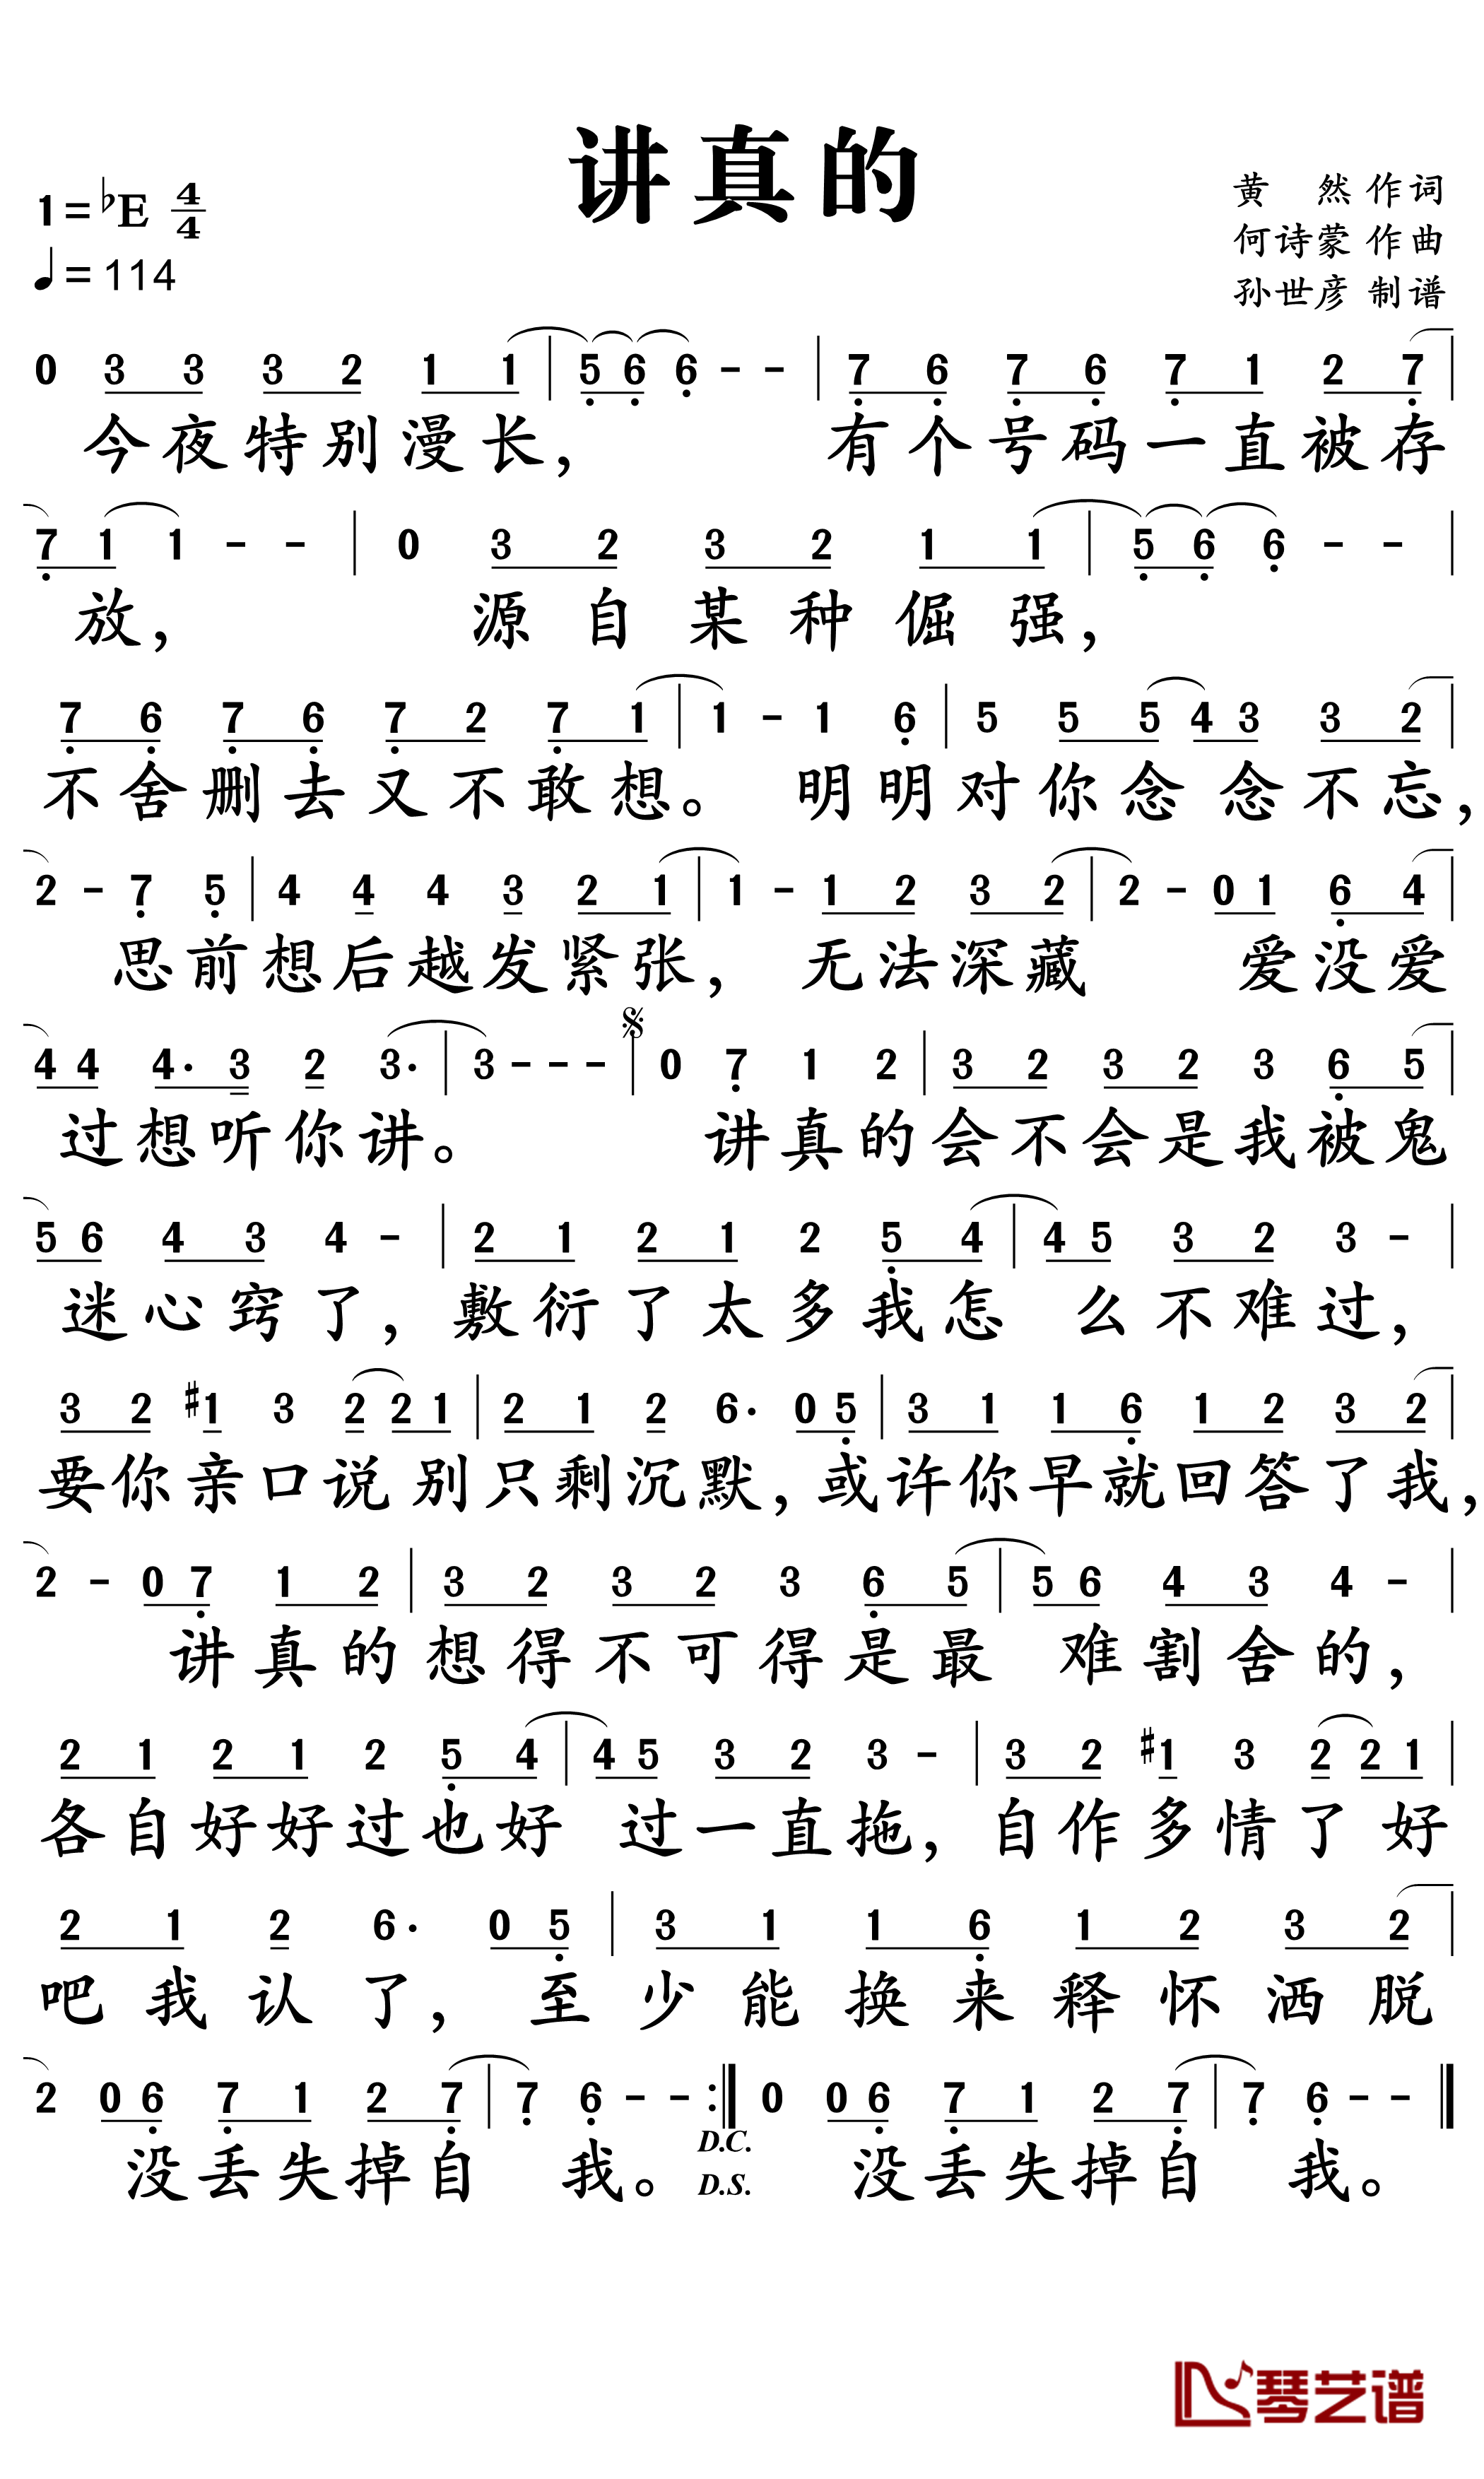 讲真的
1=♭E 4/4
♩=114
黄 然 作词
何诗蒙 作曲
孙世彦 制谱
0 3 3 3 2 1 1 | 5 6 6 - - | 7 6 7 6 7 1 2 7 |
今夜特别漫长， 有个号码一直被存
7 1 1 - - | 0 3 2 3 2 1 1 | 5 6 6 - - |
放， 源自某种倔强，
7 6 7 6 7 2 7 1 | 1 - 1 6 | 5 5 5 4 3 3 2 |
不舍删去又不敢想。 明明对你念念不忘，
2 - 7 5 | 4 4 4 3 2 1 | 1 - 1 2 3 2 | 2 - 0 1 6 4 |
思前想后越发紧张， 无法深藏 爱没爱
4 4 4· 3 2 3· | 3 - - - | 0 7 1 2 | 3 2 3 2 3 6 5 |
过想听你讲。 讲真的会不会是我被鬼
5 6 4 3 4 - | 2 1 2 1 2 5 4 | 4 5 3 2 3 - |
迷心窍了， 敷衍了太多我怎 么不难过，
3 2 #1 3 2 2 1 | 2 1 2 6· 0 5 | 3 1 1 6 1 2 3 2 |
要你亲口说 别只剩沉默， 或许你早就回答了我，
2 - 0 7 1 2 | 3 2 3 2 3 6 5 | 5 6 4 3 4 - |
讲真的想得不可得是最 难割舍的，
2 1 2 1 2 5 4 | 4 5 3 2 3 - | 3 2 #1 3 2 2 1 |
各自好好过也好 过一直拖， 自作多情了 好
2 1 2 6· 0 5 | 3 1 1 6 1 2 3 2 |
吧我认了， 至少能换来释怀洒脱
2 0 6 7 1 2 7 | 7 6 - - :| 0 0 6 7 1 2 7 | 7 6 - - |
没丢失掉自 我。 D.C. 没丢失掉自 我。
D.S.
琴艺谱